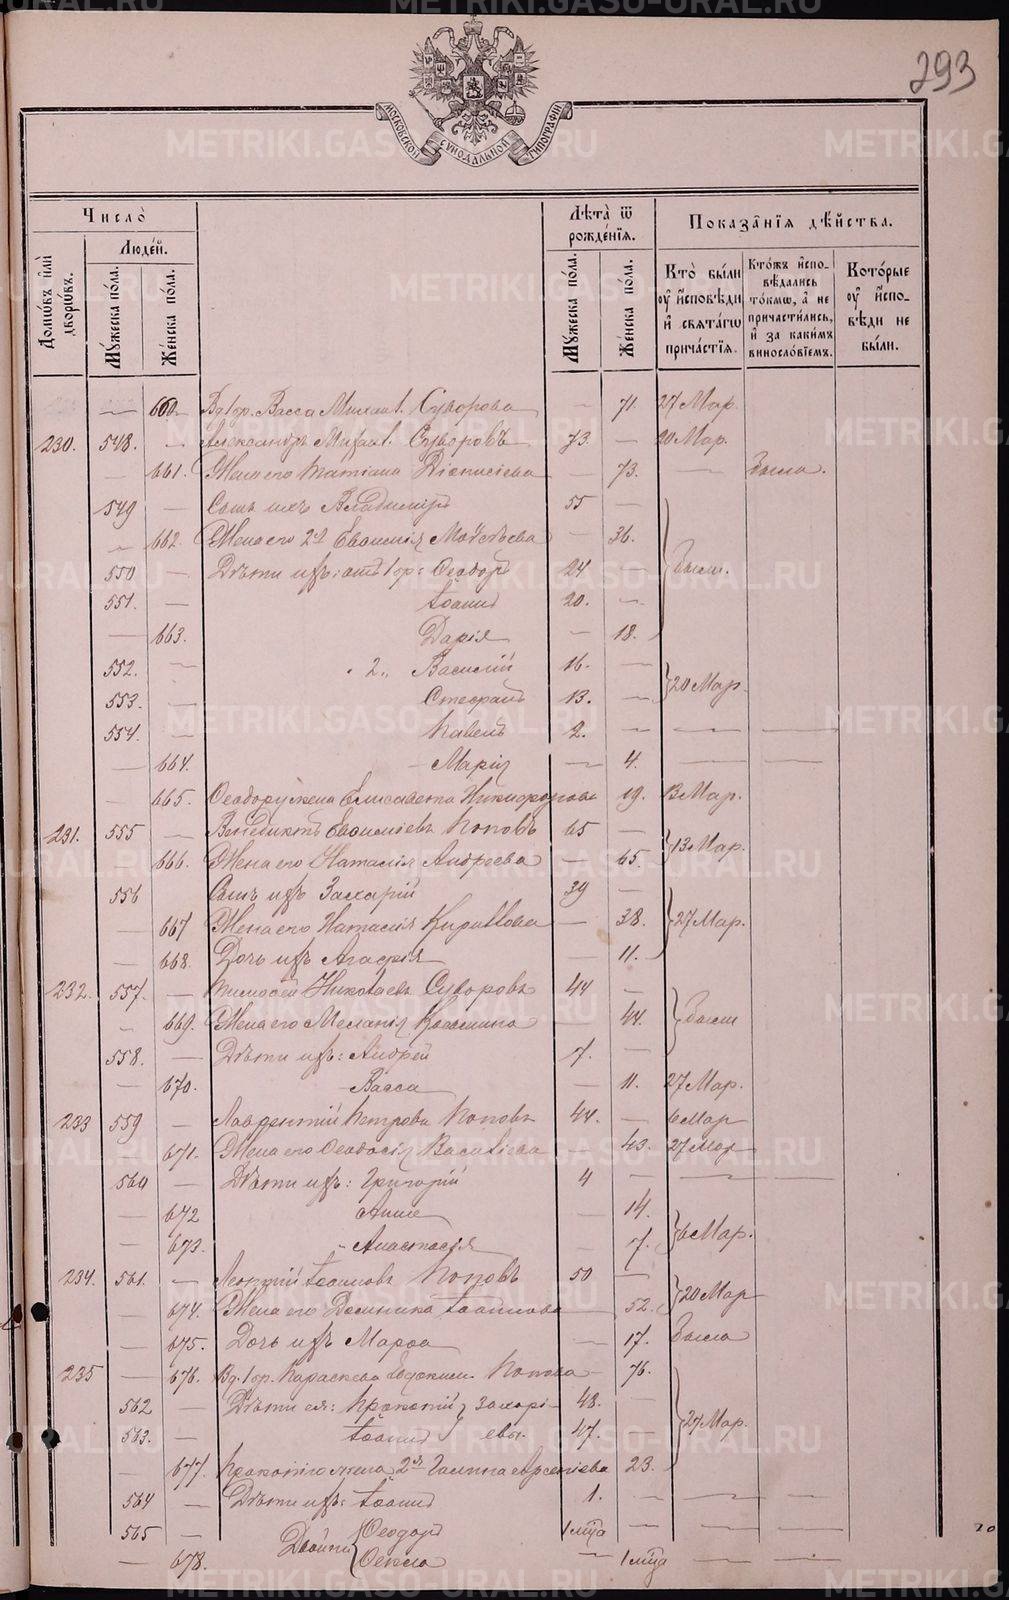 293
МОСКОВСКОЙ СѴНОДАЛЬНОЙ ТИПОГРАФІИ
Число̀
Домѡвъ и҆лѝ дворѡвъ.
Люде́й.
Мꙋ́жеска по́ла.
Же́нска по́ла.
Лѣ́та ѿ рожде́нїѧ.
Мꙋ́жеска по́ла.
Же́нска по́ла.
Показа̑нїѧ дѣ́йства.
Кто̀ бы́ли ᲂу҆ и҆спо́вѣди и҆ свѧта́гѡ прича́стїѧ.
Кто́жъ и҆спо-вѣдались то́кмѡ, а҆ не причасти́лись, и҆ за каки́мъ виносло́вїемъ.
Кото́рые ᲂу҆ и҆спо-вѣди не бы́ли.
— 660 Вд. 1 бр. Васса Михаил. Суворова — 71. 27 Мар.
230. 548. — Александръ Михаил. Суворовъ 73. — 20 Мар.
— 661. Жена его Татіана Діонисіева — 73. — Была.
549 — Сынъ ихъ Владимиръ 55 —
— 662. Жена его 2я Евѳимія Моѵсѣева — 36.
550 — Дѣти ихъ: отъ 1 бр: Ѳеодоръ 24 — Были.
551. — Іоаннъ 20. —
— 663. Дарія — 18.
552. — " 2. " Василій 16. —
553. — Стефанъ 13. — 20 Мар.
554. — Павелъ 2. — — —
— 664. Марія — 4. — —
— 665. Ѳеодору жена Елисавета Никифорова 19. 13 Мар.
231. 555 — Венедиктъ Евѳиміевъ Поповъ 65 —
— 666. Жена его Наталія Андреева — 65. 13 Мар.
556 Сынъ ихъ Захарій 39 —
— 667 Жена его Наталія Кириллова — 38. 27 Мар.
— 668. Дочь ихъ Агафія — 11.
232. 557. — Тимоѳей Николаевъ Суворовъ 44 —
— 669. Жена его Меланія Космина — 44. Были
558. — Дѣти ихъ: Андрей 7. —
— 670. Васса — 11. 27 Мар.
233 559 — Лаврентій Петровъ Поповъ 44. — 6 Мар
— 671. Жена его Ѳеодосія Василіева — 43. 27 Мар
560 — Дѣти ихъ: Григорій 4 — — —
— 672 Анна — 14.
— 673. Анастасія — 7. 6 Мар.
234. 561. — Леонтій Іоанновъ Поповъ 50 —
— 674. Жена его Домника Іоаннова — 52. 20 Мар
— 675. Дочь ихъ Марѳа — 17. Была
235 — 676. Вд. 1 бр. Параскева Евдоким. Попова — 76.
562 — Дѣти ея: Прокопій Захарі- 48. —
563. — Іоаннъ евы. 47. — 27 Мар.
— 677. Прокопію жена 2я Галина Арсеніева 23.
564 — Дѣти ихъ: Іоаннъ 1. — — —
565 — Двойни Ѳеодоръ 1 мца — — —
— 678. Ѳекла — 1 мца — —
METRIKI.GASO-URAL.RU